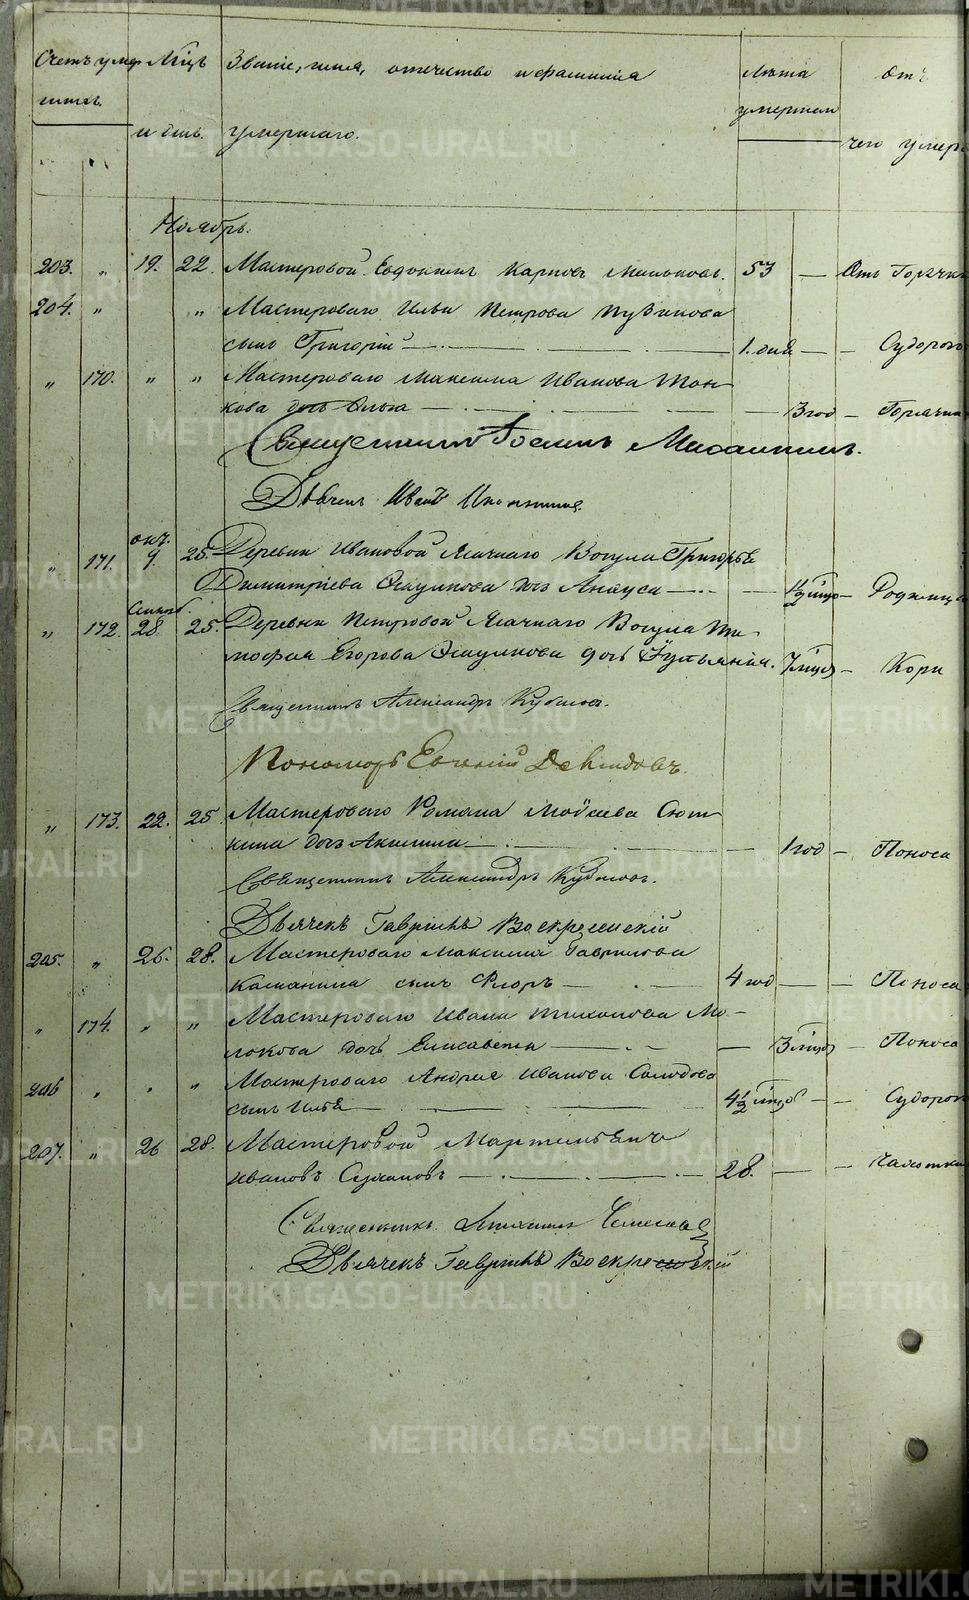 Счетъ умер Мцъ Званіе, имя, отчество и фамилія Лѣта Отъ
шихъ. и днь. умершаго. умершаго чего умеръ
Ноябрь.
203. „ 19. 22. Мастеровой Евдокимъ Карповъ 53 — Отъ Горячки
204. „ „ Мастероваго Ильи Петрова Пузанова
сынъ Григорій — 1. дня — Судорогъ
„ 170. „ „ Мастероваго Максима Иванова Тон-
кова дочь Ольга — 3 год — Горячки
Священникъ Іоаннъ
Дьячекъ Иванъ
окт.
„ 171. 9. 25. Деревни Ивановой Ясачнаго Вогула Григорья
Димитріева дочь — 1½ мцо — Родимца
Сентяб.
„ 172. 28. 25. Деревни Петровой Ясачнаго Вогула Ти-
мофея Егорова дочь Іуліянія. 7 мцов — Кори
Священникъ Александръ
Пономарь Евгеній Давыдовъ.
„ 173. 22. 25. Мастероваго Романа Моисеева Сют-
кина дочь Акилина — 1 год — Поноса
Священникъ Александръ
Дьячекъ Гавріилъ Воскресенскій
205. „ 26. 28. Мастероваго Максима Гаврилова
сынъ Флоръ — 4 год — Поноса
„ 174. „ „ Мастероваго Ивана Тихонова Мо-
локова дочь Елисавета — 3 мцов — Поноса
206 „ „ „ Мастероваго Андрея Иванова Солодова
сынъ Илья — 4½ мцов — Судорогъ
207. „ 26 28. Мастеровой
Ивановъ — 28. — Чахотки
Священникъ
Дьячекъ Гавріилъ Воскресенскій
METRIKI.GASO-URAL.RU